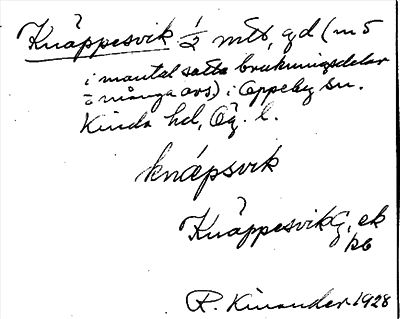 Knäppesvik 1/2 mtl, gd (m 5
i mantal satta brukningsdelar
= många avs.) i Oppeby sn.
Kinda hd, Ög. l.
knæpsvik
Knäppesvik G, ek
R. Kinander 1928